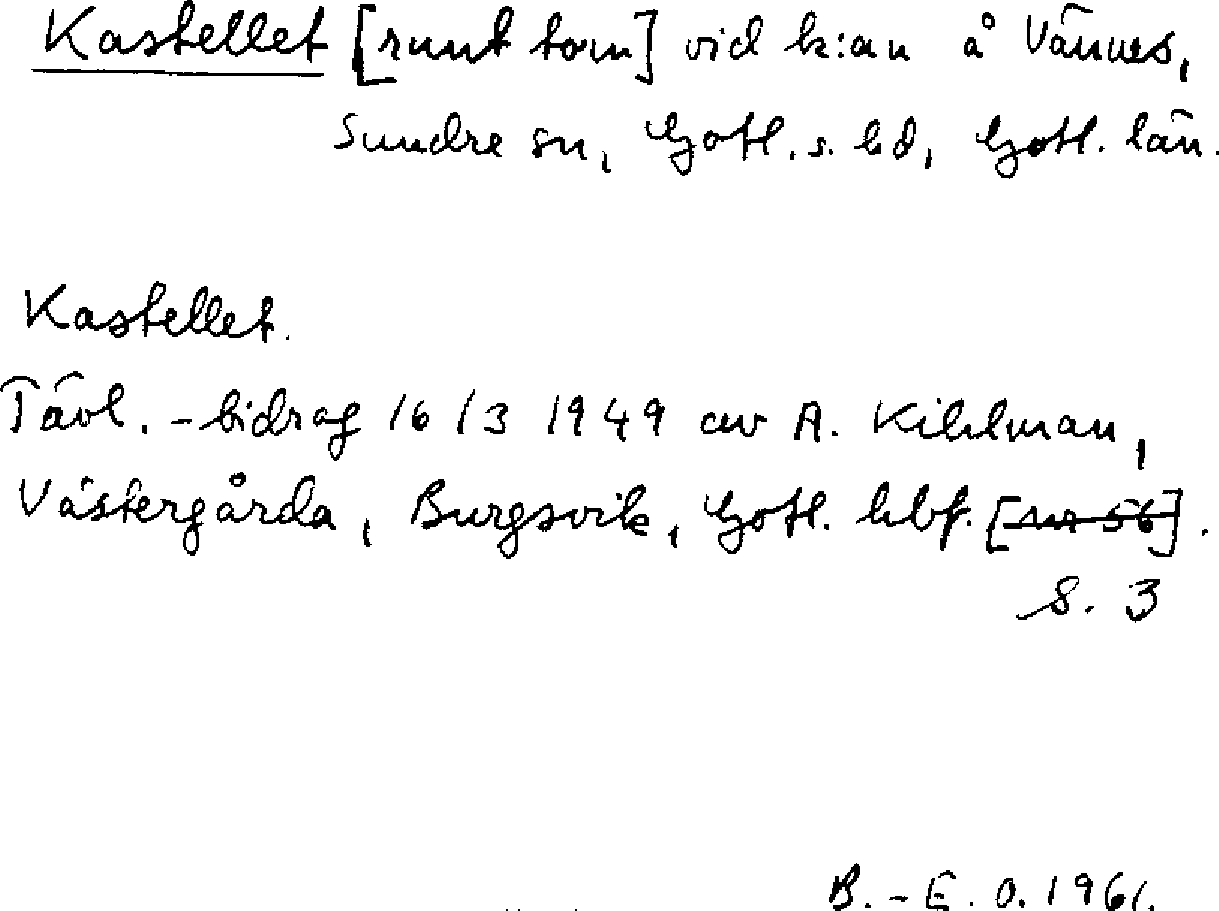 Kastellet [runt torn] vid k:an å Vännes,
Sundre sn, Gotl. s. hd, Gotl. län.
Kastellet.
Tävl.-bidrag 16/3 1949 av A. Kihlman,
Västergårda, Burgsvik, Gotl. hbf. [nr 56].
S. 3
B.-E. O. 1961.